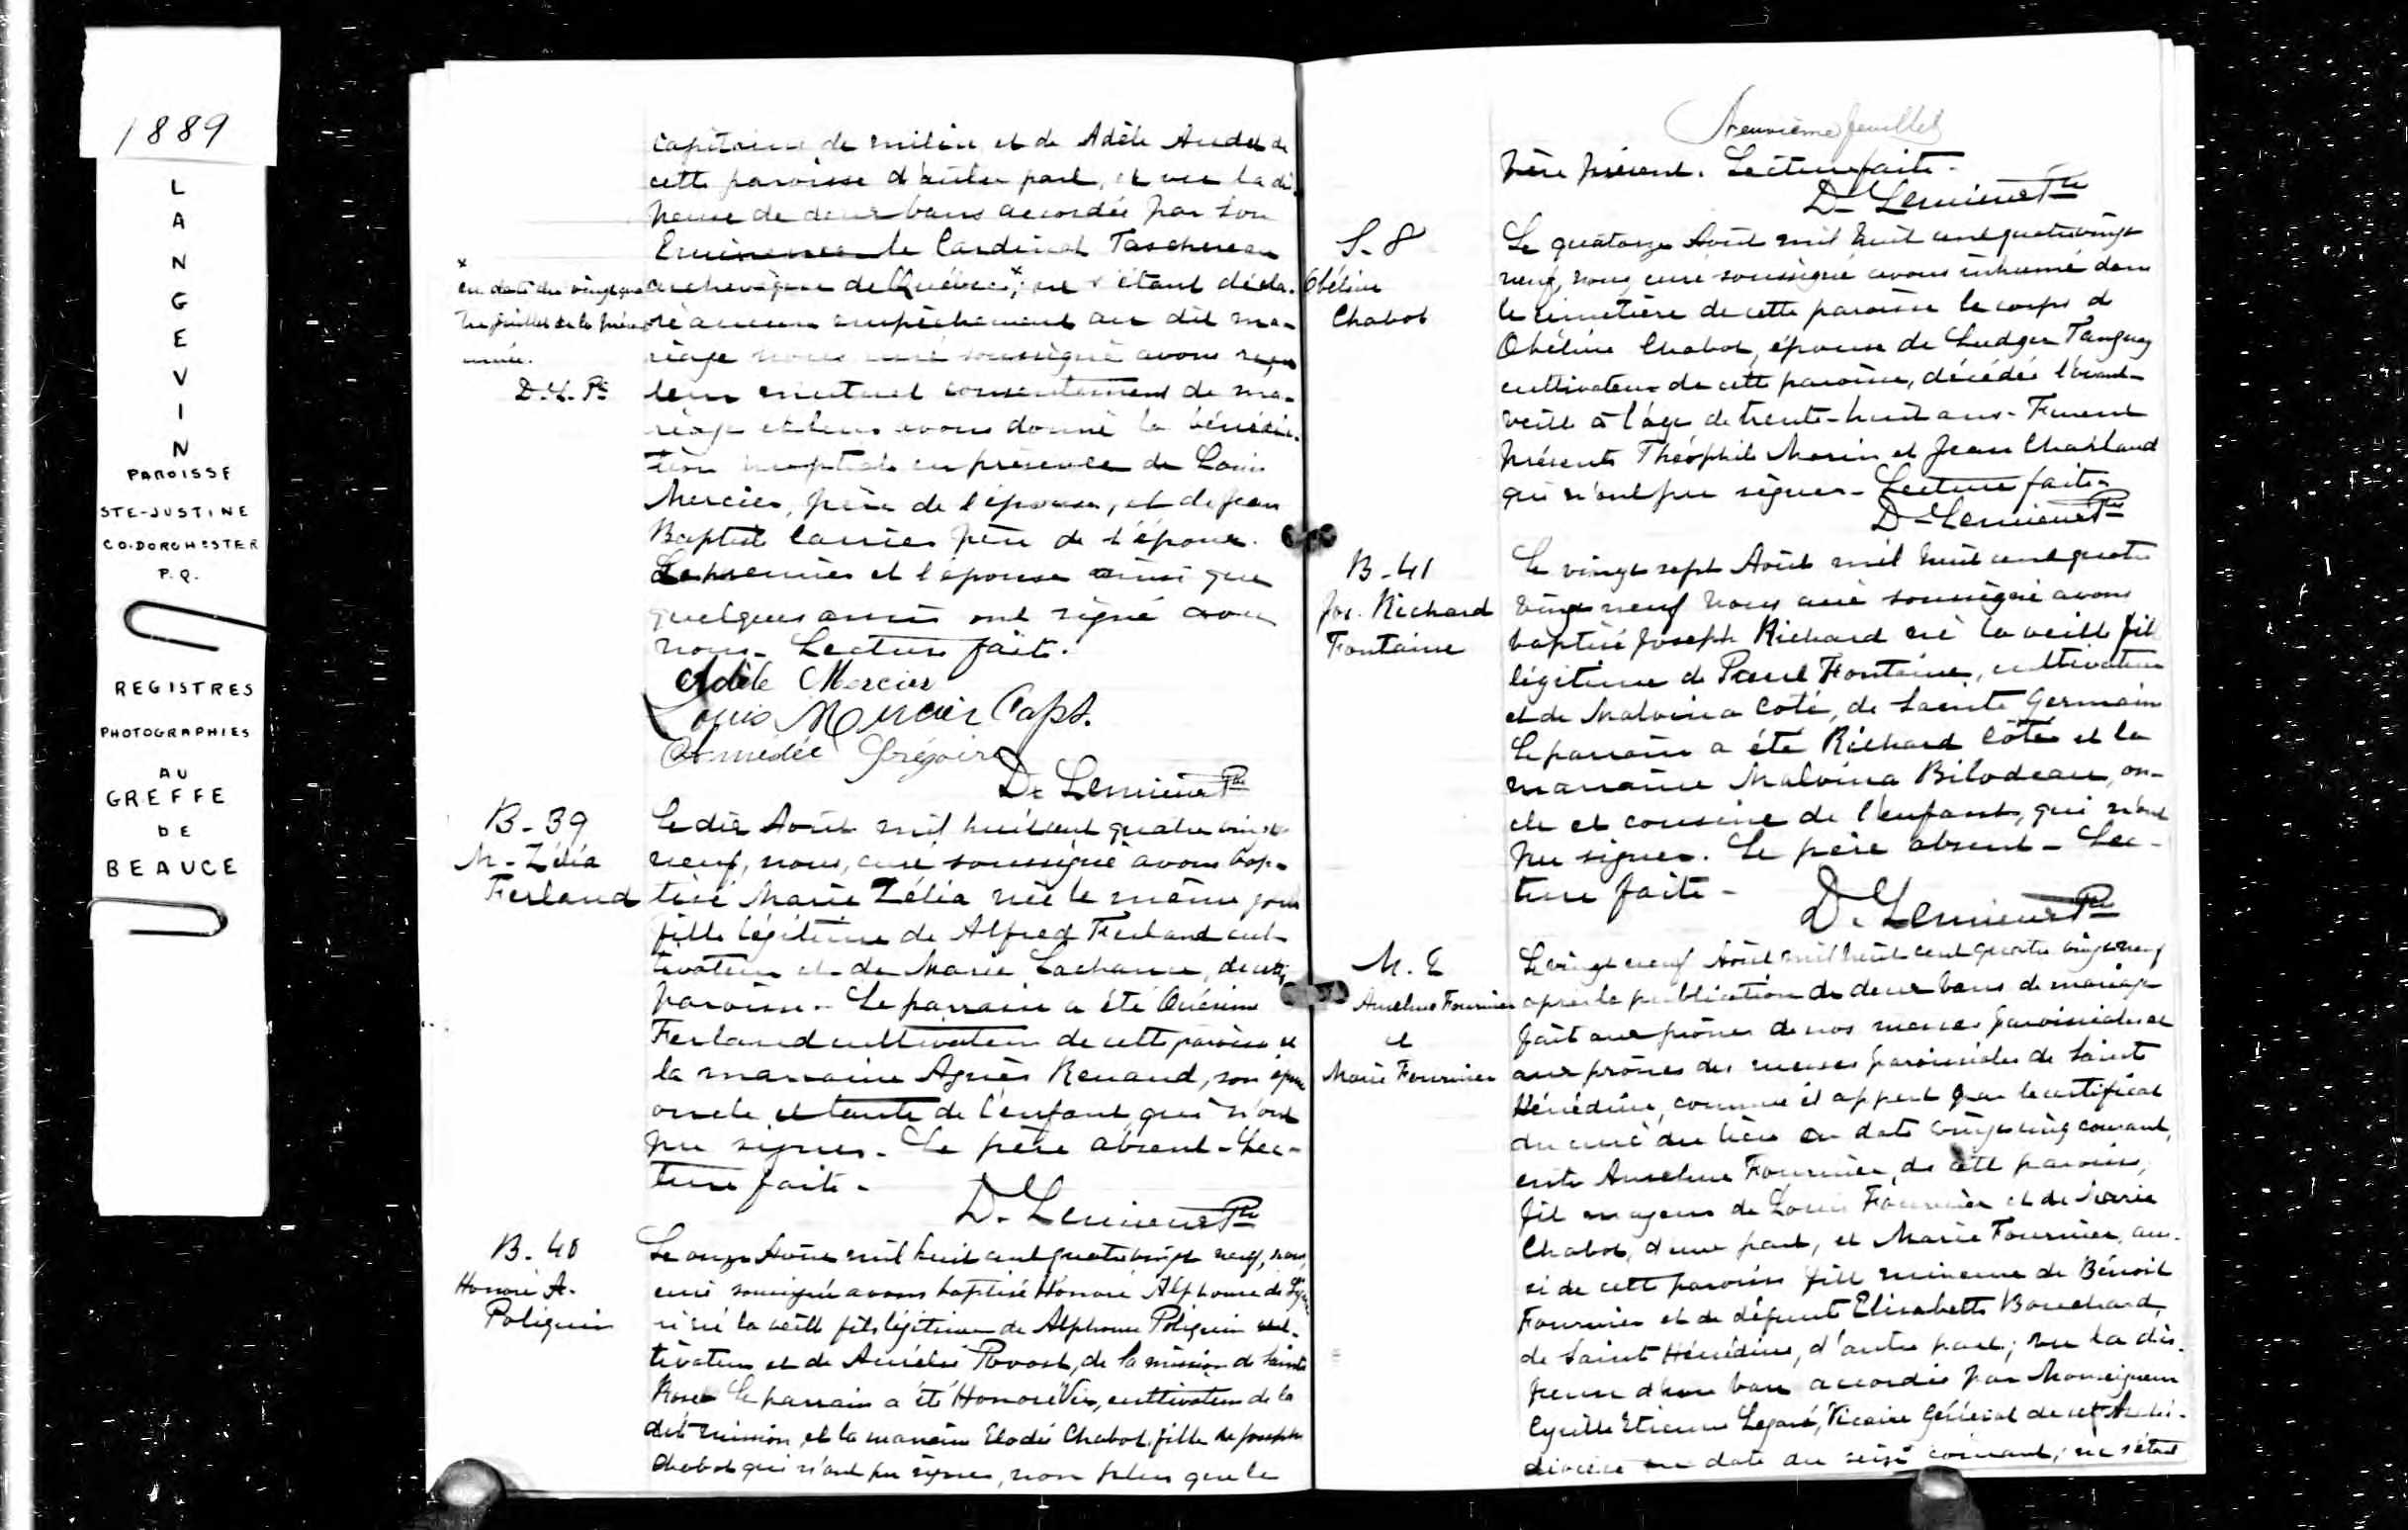 1889
L
A
N
G
E
V
I
N
PAROISSE
STE-JUSTINE
CO. DORCHESTER
P. Q.
REGISTRES
PHOTOGRAPHIES
AU
GREFFE
DE
BEAUCE
capitaine de milice et de Adèle Audet de
cette paroisse d'autre part, et vu la di-
pense de deux bans accordée par Son
Eminence le Cardinal Taschereau
archevêque de Québec,* ne s'étant décla-
ré aucun empêchement au dit ma-
riage nous curé soussigné avons reçu
leur mutuel consentement de ma-
riage et leur avons donné la bénédic-
tion nuptiale en présence de Louis
Mercier, père de l'épouse, et de Jean
Baptiste Carrier père de l'époux.
Le premier et l'épouse ainsi que
quelques amis ont signé avec
nous. Lecture faite.
* en date du vingt qua
tre juillet de la présente
année.
D. L. Ptre
Adèle Mercier
Louis Mercier Capt.
Amédée Grégoire
D. Lemieux Ptre
B-39
M-Zélia
Ferland
Le dix Août mil huit cent quatre vingt
neuf, nous, curé soussigné avons bap-
tisé Marie Zélia née le même jour
fille légitime de Alfred Ferland cul-
tivateur et de Marie Lachance, de cette
paroisse. Le parrain a été Onésime
Ferland cultivateur de cette paroisse et
la marraine Agnès Renaud, son épouse
oncle et tante de l'enfant qui n'ont
pu signer. Le père absent - Lec-
ture faite -
D. Lemieux Ptre
B. 40
Honoré A.
Poliquin
Le onze Août mil huit cent quatre vingt neuf, nous,
curé soussigné avons baptisé Honoré Alphonse de
né la veille fils légitime de Alphonse Poliquin cul-
tivateur et de Aurélie Provost, de la mission de Sainte
Rose Le parrain a été Honoré Vir, cultivateur de la
dite mission, et la marraine Elodie Chabot fille de Joseph
Chabot qui n'ont pu signer, non plus que le
Neuvième feuillet
père présent. Lecture faite -
D. Lemieux Ptre
S-8
Obéline
Chabot
Le quatorze Août mil huit cent quatre vingt
neuf, nous, curé soussigné avons inhumé dans
le cimetière de cette paroisse le corps de
Obéline Chabot, épouse de Ludger Tanguay
cultivateur de cette paroisse, décédée l'avant-
veille à l'âge de trente-huit ans - Furent
présents Théophile Morin et Jean Charland
qui n'ont pu signer - Lecture faite -
D. Lemieux Ptre
B-41
Jos. Richard
Fontaine
Le vingt sept Août mil huit cent quatre
vingt neuf nous curé soussigné avons
baptisé Joseph Richard né la veille fils
légitime de Paul Fontaine, cultivateur
et de Malvina Coté, de Sainte Germain
Le parrain a été Richard Côté et la
marraine Malvina Bilodeau, on-
cle et cousine de l'enfant, qui n'ont
pu signer. Le père absent - Lec-
ture faite -
D. Lemieux Ptre
M. E
Anselme Fournier
et
Marie Fournier
Le vingt neuf Août mil huit cent quatre vingt neuf
après la publication de deux bans de mariage
fait aux prônes de nos messes paroissiales et
aux prônes des messes paroissiales de Saint
Hénédine, comme il appert par le certificat
du curé du lieu en date vingt cinq courant,
entre Anselme Fournier, de cette paroisse,
fils majeur de Louis Fournier et de Marie
Chabot, d'une part, et Marie Fournier, aus-
si de cette paroisse fille mineure de Bénoit
Fournier et de défunte Elisabeth Bouchard,
de Saint Hénédine, d'autre part; vu la dis-
pense d'un ban accordée par Monseigneur
Cyrille Etienne Legaré, Vicaire Général de cet Archi-
diocèse en date du seize courant; ne s'étant